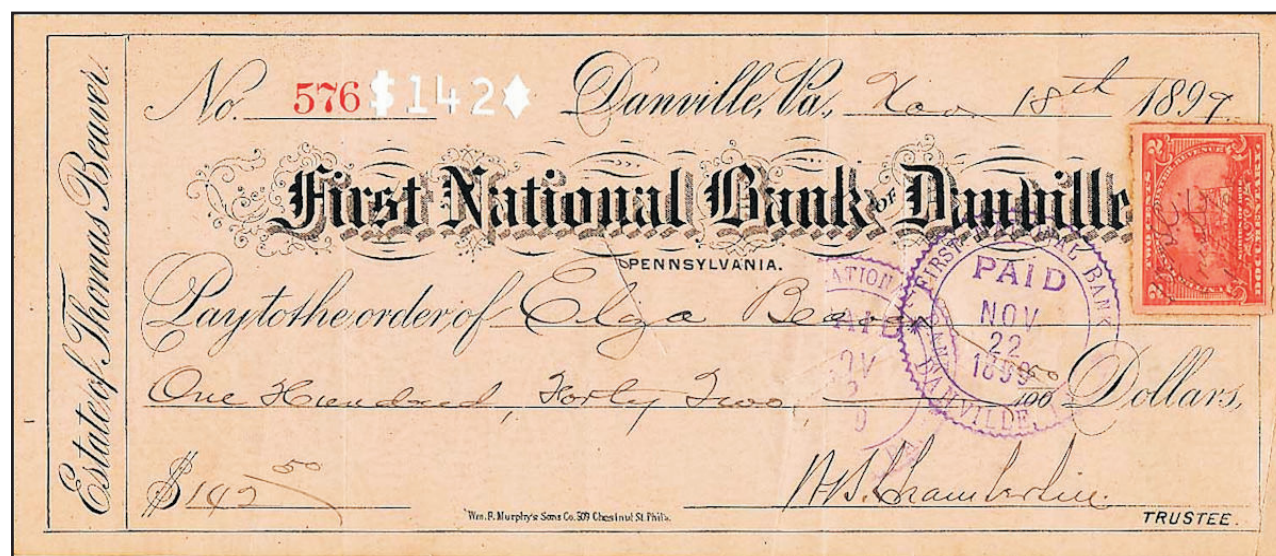 Estate of Thomas Beaver.
No. 576 $142♦ Danville, Pa., Nov 18th 1899
First National Bank of Danville
PENNSYLVANIA.
Pay to the order of Eliza Beaver
One Hundred, Forty Two, 50/100 Dollars,
$142 50
Wm. F. Murphy's Sons Co. 509 Chestnut St. Phila.
TRUSTEE.
FIRST NATIONAL BANK
PAID
NOV
22
1899
DANVILLE,
DOCUMENTARY